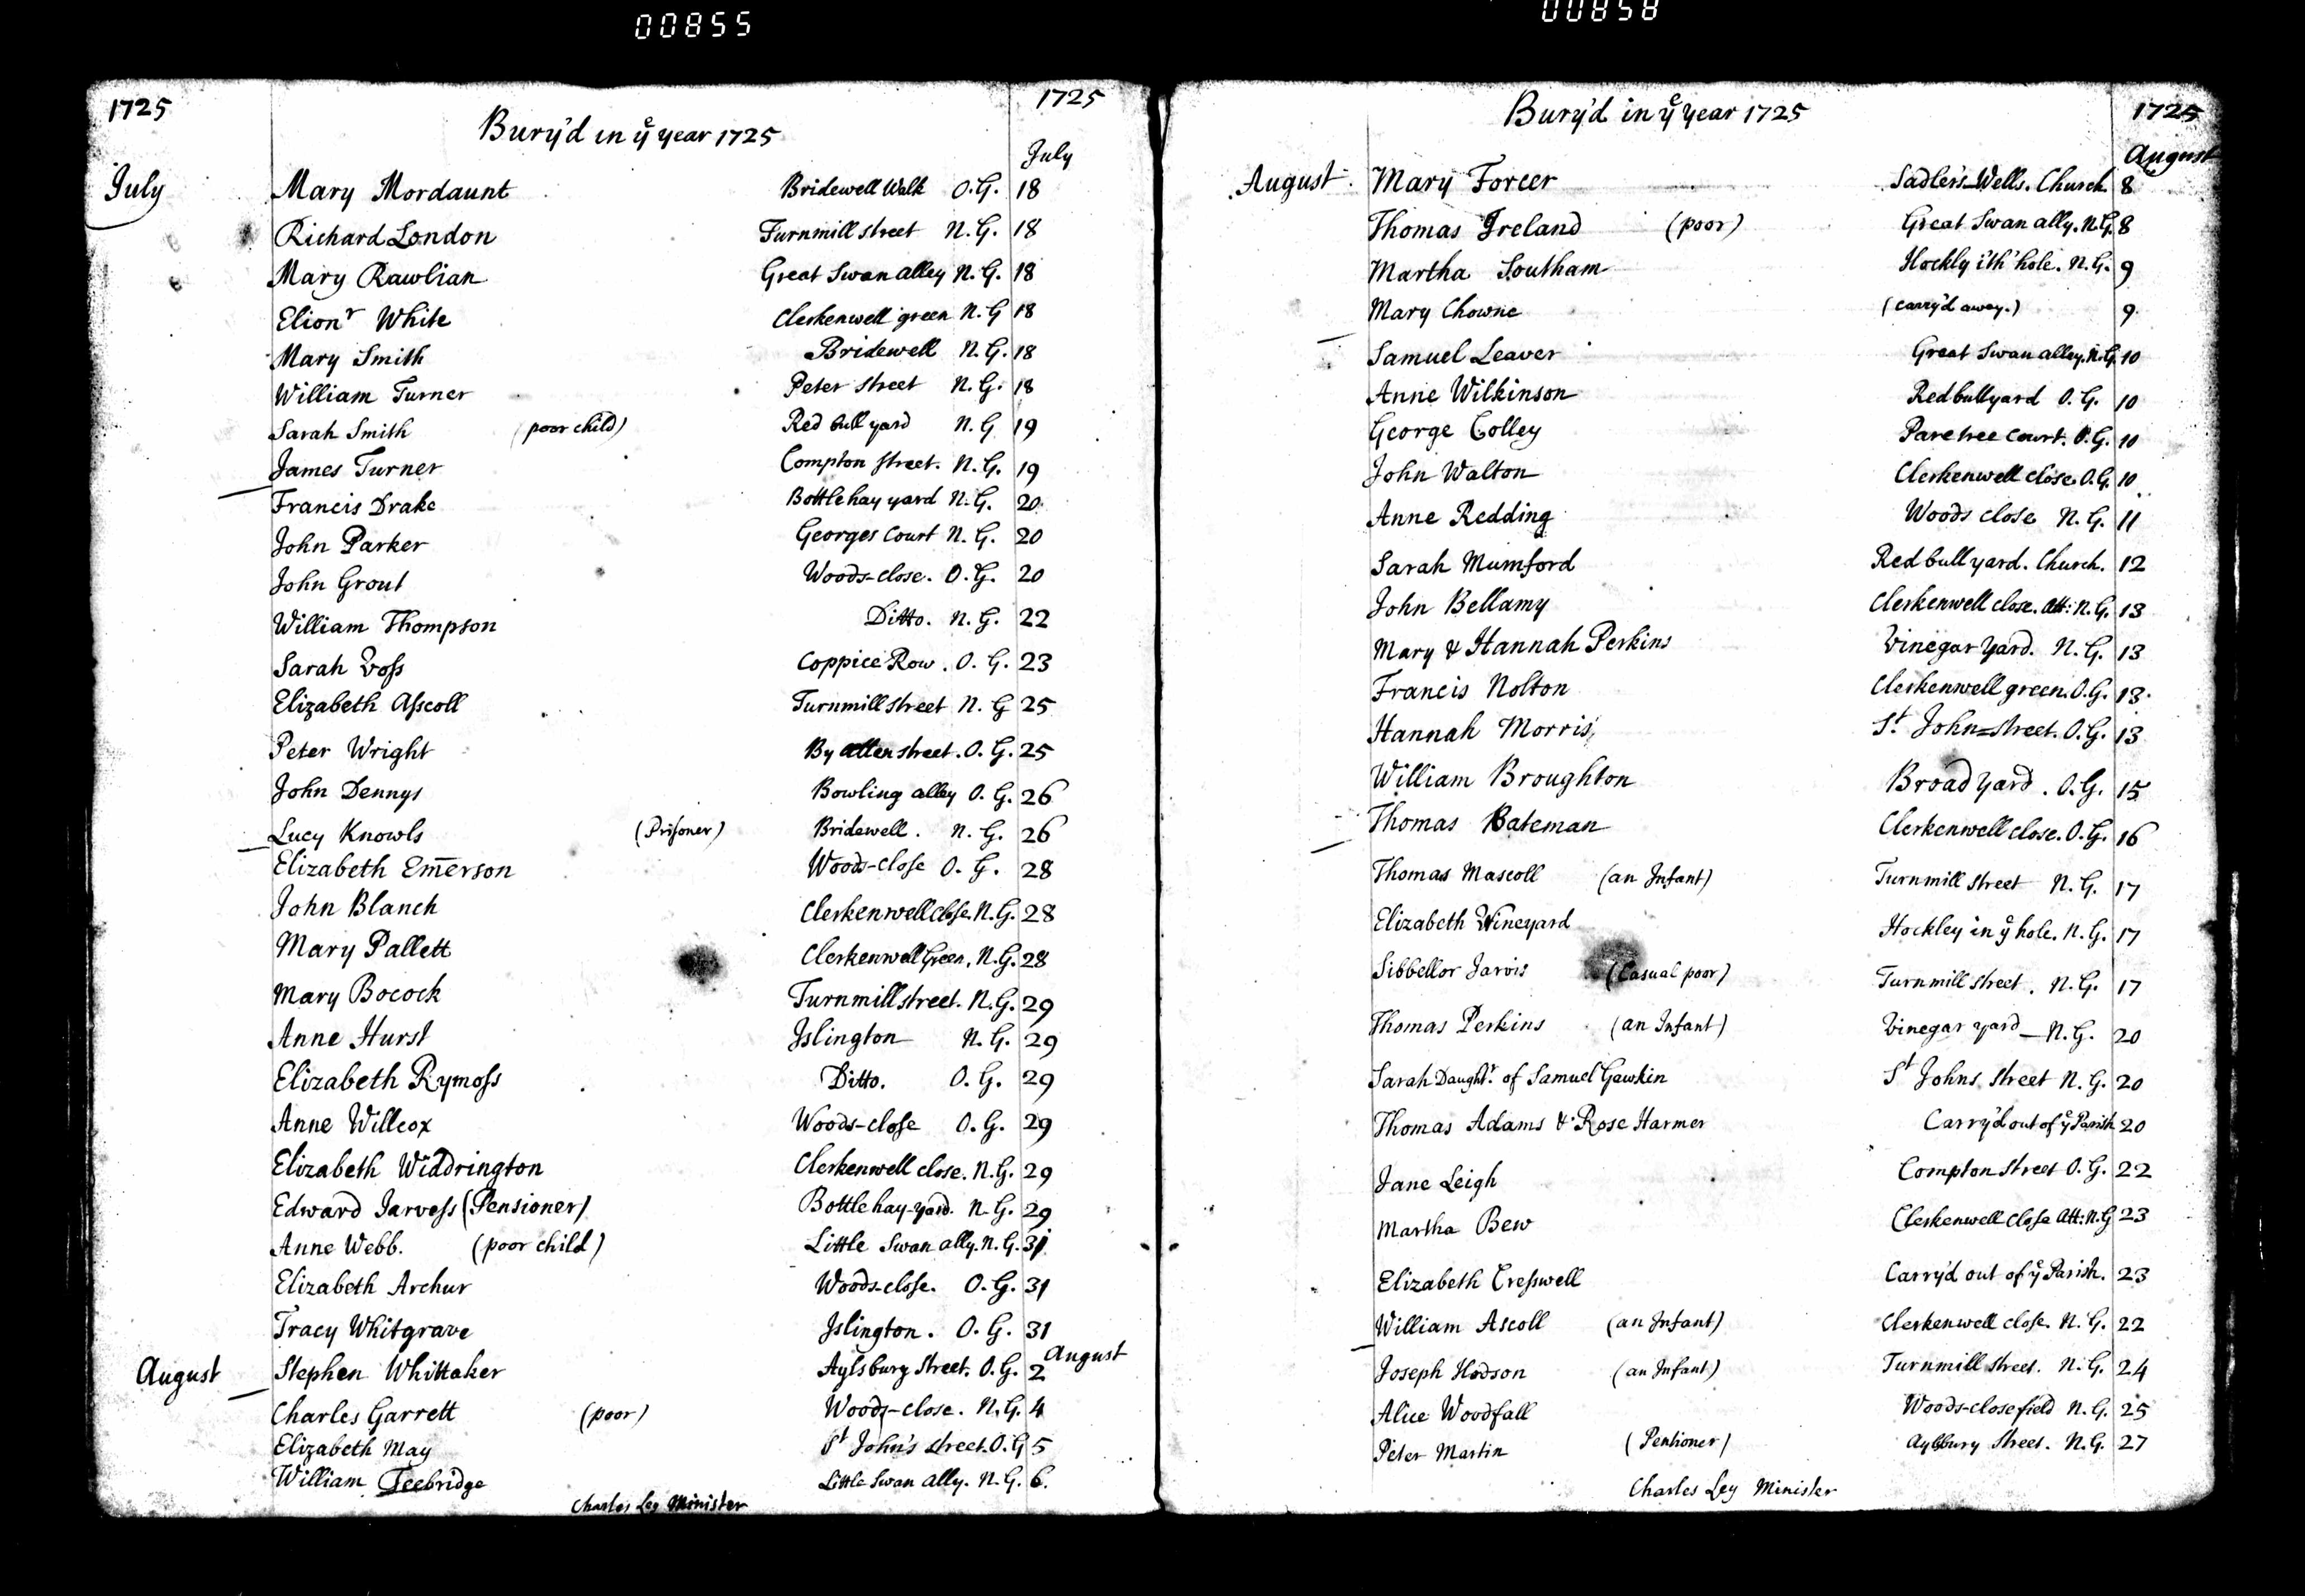 00855
00858
1725
Bury'd in yᵉ year 1725
1725
July
July
Mary Mordaunt Bridewell Walk O.G. 18
Richard London Turnmill street N.G. 18
Mary Rawlian Great Swan alley N.G. 18
Elionʳ White Clerkenwell green N.G 18
Mary Smith Bridewell N.G. 18
William Turner Peter street N.G. 18
Sarah Smith (poor child) Red bull yard N.G 19
James Turner Compton street. N.G. 19
Francis Drake Bottlehay yard N.G. 20
John Parker Georges Court N.G. 20
John Grout Woods-close. O.G. 20
William Thompson Ditto. N.G. 22
Sarah Voſs Coppice Row. O.G. 23
Elizabeth Aſscoll Turnmill street N.G 25
Peter Wright By allen street. O.G. 25
John Dennys Bowling alley O.G. 26
Lucy Knowls (Priſoner) Bridewell. N.G. 26
Elizabeth Em̄erson Woods-cloſe O.G. 28
John Blanch Clerkenwell cloſe. N.G. 28
Mary Pallett Clerkenwell Green. N.G. 28
Mary Bocock Turnmill street. N.G. 29
Anne Hurst Islington N.G. 29
Elizabeth Rymoſs Ditto. O.G. 29
Anne Willcox Woods-cloſe O.G. 29
Elizabeth Widdrington Clerkenwell close. N.G. 29
Edward Jarveſs (Pensioner) Bottlehay-yard. N.G. 29
Anne Webb. (poor child) Little Swan ally. N.G. 31
Elizabeth Archur Woods-close. O.G. 31
Tracy Whitgrave Islington. O.G. 31
August
August Stephen Whittaker Aylsbury Street. O.G. 2
Charles Garrett (poor) Woods-close. N.G. 4
Elizabeth May Sᵗ John's street. O.G 5
William Teebridge Little Swan ally. N.G. 6.
Charles Ley Minister
Bury'd in yᵉ year 1725
1725
August
August Mary Forcer Sadler's-Wells. Church 8
Thomas Ireland (poor) Great Swan ally. N.G. 8
Martha Southam Hockly i'th' hole. N.G. 9
Mary Chowne (carry'd away.) 9
Samuel Leaver Great Swan alley. N.G 10
Anne Wilkinson Redbull yard O.G. 10
George Colley Paretree Court. O.G. 10
John Walton Clerkenwell close. O.G. 10
Anne Redding Woods close N.G. 11
Sarah Mumford Red bull yard. Church. 12
John Bellamy Clerkenwell close. Att: N.G. 13
Mary & Hannah Perkins Vinegar Yard. N.G. 13
Francis Nolton Clerkenwell green. O.G. 13.
Hannah Morris Sᵗ John=street. O.G. 13
William Broughton Broad Yard. O.G. 15
Thomas Bateman Clerkenwell close. O.G. 16
Thomas Mascoll (an Infant) Turnmill street N.G. 17
Elizabeth Wineyard Hockley in yᵉ hole. N.G. 17
Sibbellor Jarvis (Casual poor) Turnmill street. N.G. 17
Thomas Perkins (an Infant) Vinegar yard - N.G. 20
Sarah Daughtʳ. of Samuel Gawkin Sᵗ Johns street N.G. 20
Thomas Adams & Rose Harmer Carry'd out of yᵉ Parish 20
Jane Leigh Compton street O.G. 22
Martha Bew Clerkenwell cloſe Att: N.G 23
Elizabeth Creſswell Carry'd out of yᵉ Parish. 23
William Ascoll (an Infant) Clerkenwell close. N.G. 22
Joseph Hodson (an Infant) Turnmill street. N.G. 24
Alice Woodfall Woods-close field N.G. 25
Peter Martin (Pentioner) Aylsbury Street. N.G. 27
Charles Ley Minister